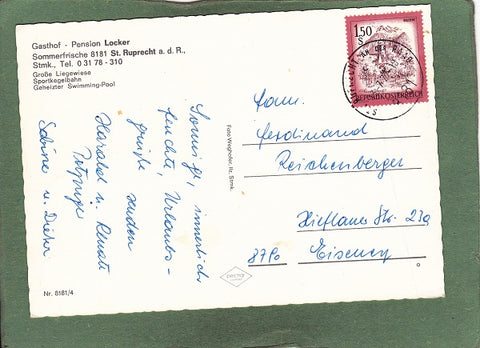 Gasthof - Pension Locker
Sommerfrische 8181 St. Ruprecht a. d. R.,
Stmk., Tel. 0 31 78 - 310
Große Liegewiese
Sportkegelbahn
Geheizter Swimming-Pool
Sonnige, innerlich
feuchte, Urlaubs-
grüße senden
Harald u. Renate
Sabine u. Dieter
Foto Weighofer, Ilz, Stmk.
Nr. 8181/4
1.50
S
REPUBLIK ÖSTERREICH
Fam.
Ferdinand
Reichenberger
Hieflauer Str. 23a
8790 Eisenerz